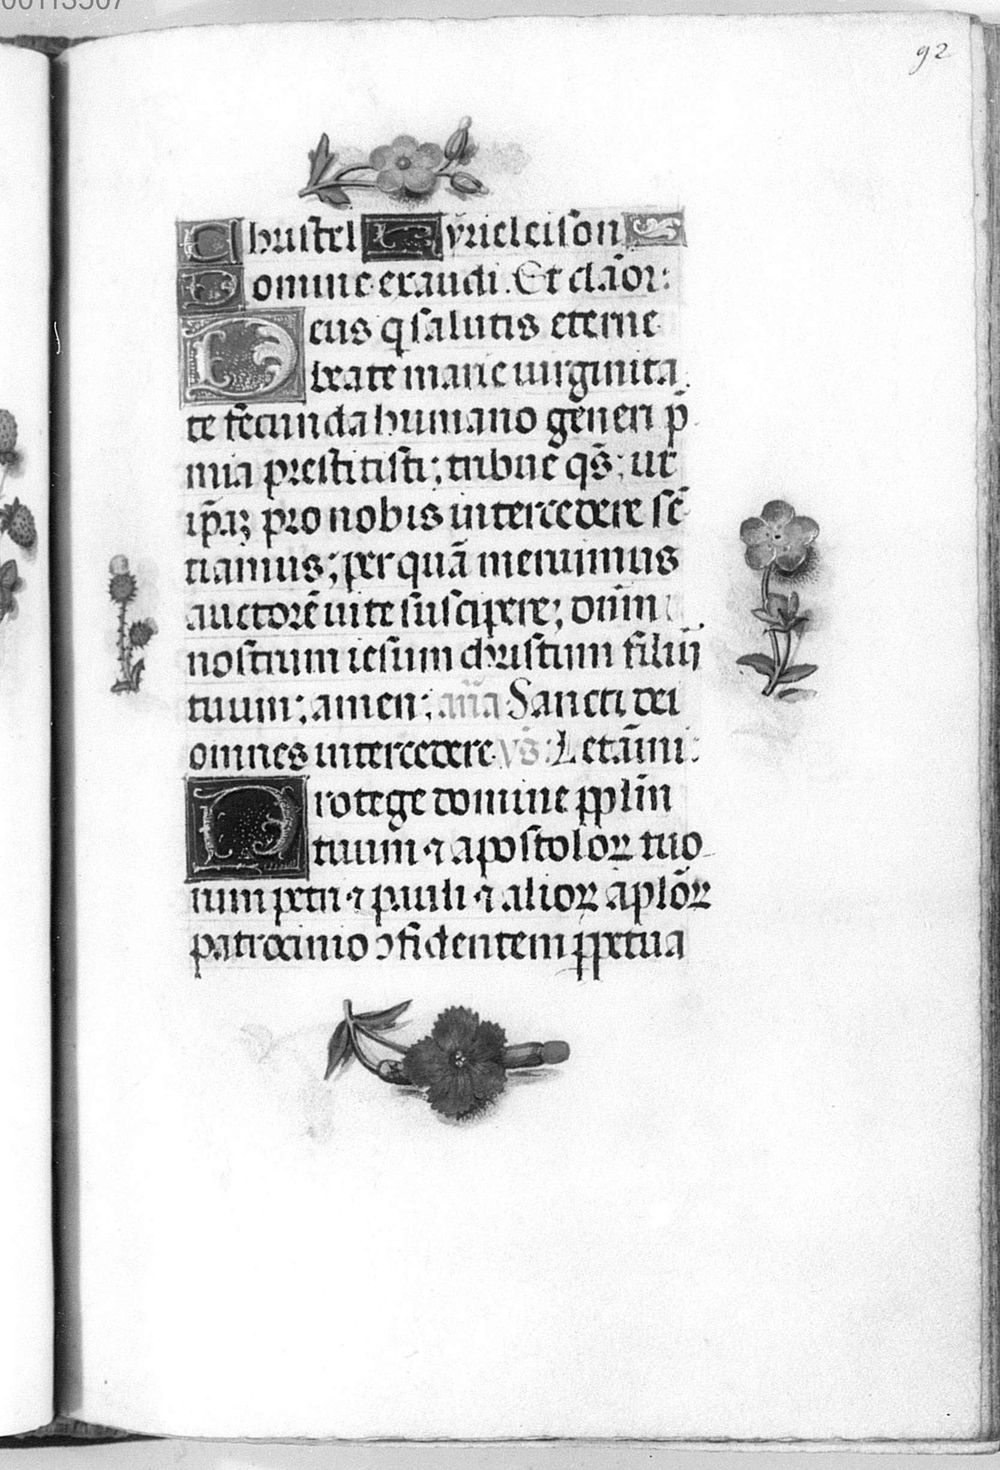 92
Christel Kyrieleison
Domine exaudi. Et clāor:
Deus q̄ salutis eterne
beate marie uirginita
te fecunda humano generi p̄
mia prestitisti; tribue qs̄; ut
ip̄aꝫ pro nobis intercedere sē
tiamus; per quā meruimus
auctorē uite suscipere; dn̄m
nostrum iesum christum filiū
tuum; amen; an̄a Sancti dei
omnes intercedere vs̄: Letāmi:
Protege domine pplm̄
tuum ⁊ apostoloꝝ tuo
rum petri ⁊ pauli ⁊ alioꝝ aplōꝝ
patrocinio ↄfidentem ꝑpetua